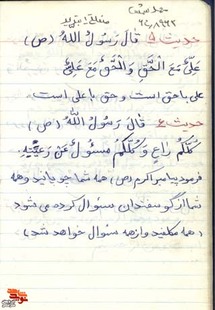 حدیث ۵ قال رَسُولُ اللهُ (ص)
عَلِیٌّ مَعَ الْحَقِّ وَالْحَقُّ مَعَ عَلِیٌّ
علی با حق است و حق با علی است.
حدیث ۶ قالَ رَسُولُ اللهُ (ص)
کُلُّکُمْ راعٍ وَ کُلُّکُمْ مَسئُولٌ عَنْ رَعیَّتِهِ
فرمود پیامبر اکرم (ص) همه شما چوپانید و همه
شما از گوسفندان سئوال کرده می شود
(همه مکلفید و از همه سئوال خواهد شد)